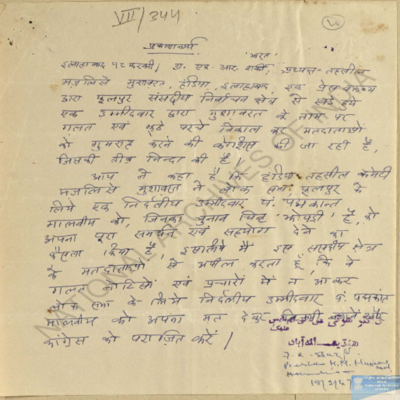 VII/344
प्रकाशनार्थ
"भारत"
इलाहाबाद १८ फरवरी / डा. एच. आर. शर्की, अध्यक्ष तहसील
मजलिसे मुशावरत, हंडिया, इलाहाबाद, एक प्रेस वक्तव्य
द्वारा फूलपुर संसदीय निर्वाचन क्षेत्र से खड़े हुये
एक उम्मीदवार द्वारा मुशावरत के नाम पर
गलत एवं झूठे परचे निकाल कर मतदाताओं
को गुमराह करने की कोशिश की जा रही है,
जिसकी तीव्र निन्दा की है /
आप ने कहा है कि हंडिया तहसील कमेटी
मजलिसे मुशावरत ने लोक सभा फूलपुर के
लिये एक निर्दलीय उम्मीदवार पं. पद्मकान्त
मालवीय को, जिनका चुनाव चिन्ह 'झोपड़ी' है, को
अपना पूरा समर्थन एवं सहयोग देने का
फैसला किया है, इस संसदीय क्षेत्र
के मतदाताओं से अपील करता हूँ कि वे
गलत नोटिसों एवं प्रचारों में न आकर
लोक सभा के लिये निर्दलीय उम्मीदवार पं. पद्मकांत
मालवीय को अपना मत देकर
कांग्रेस को पराजित करें /